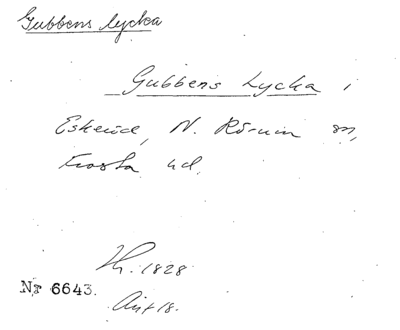 Gubbens lycka
Gubbens Lycka i
Eskeröd, N. Rörum sn,
Frosta hd.
Lh. 1828
Nr 6643.